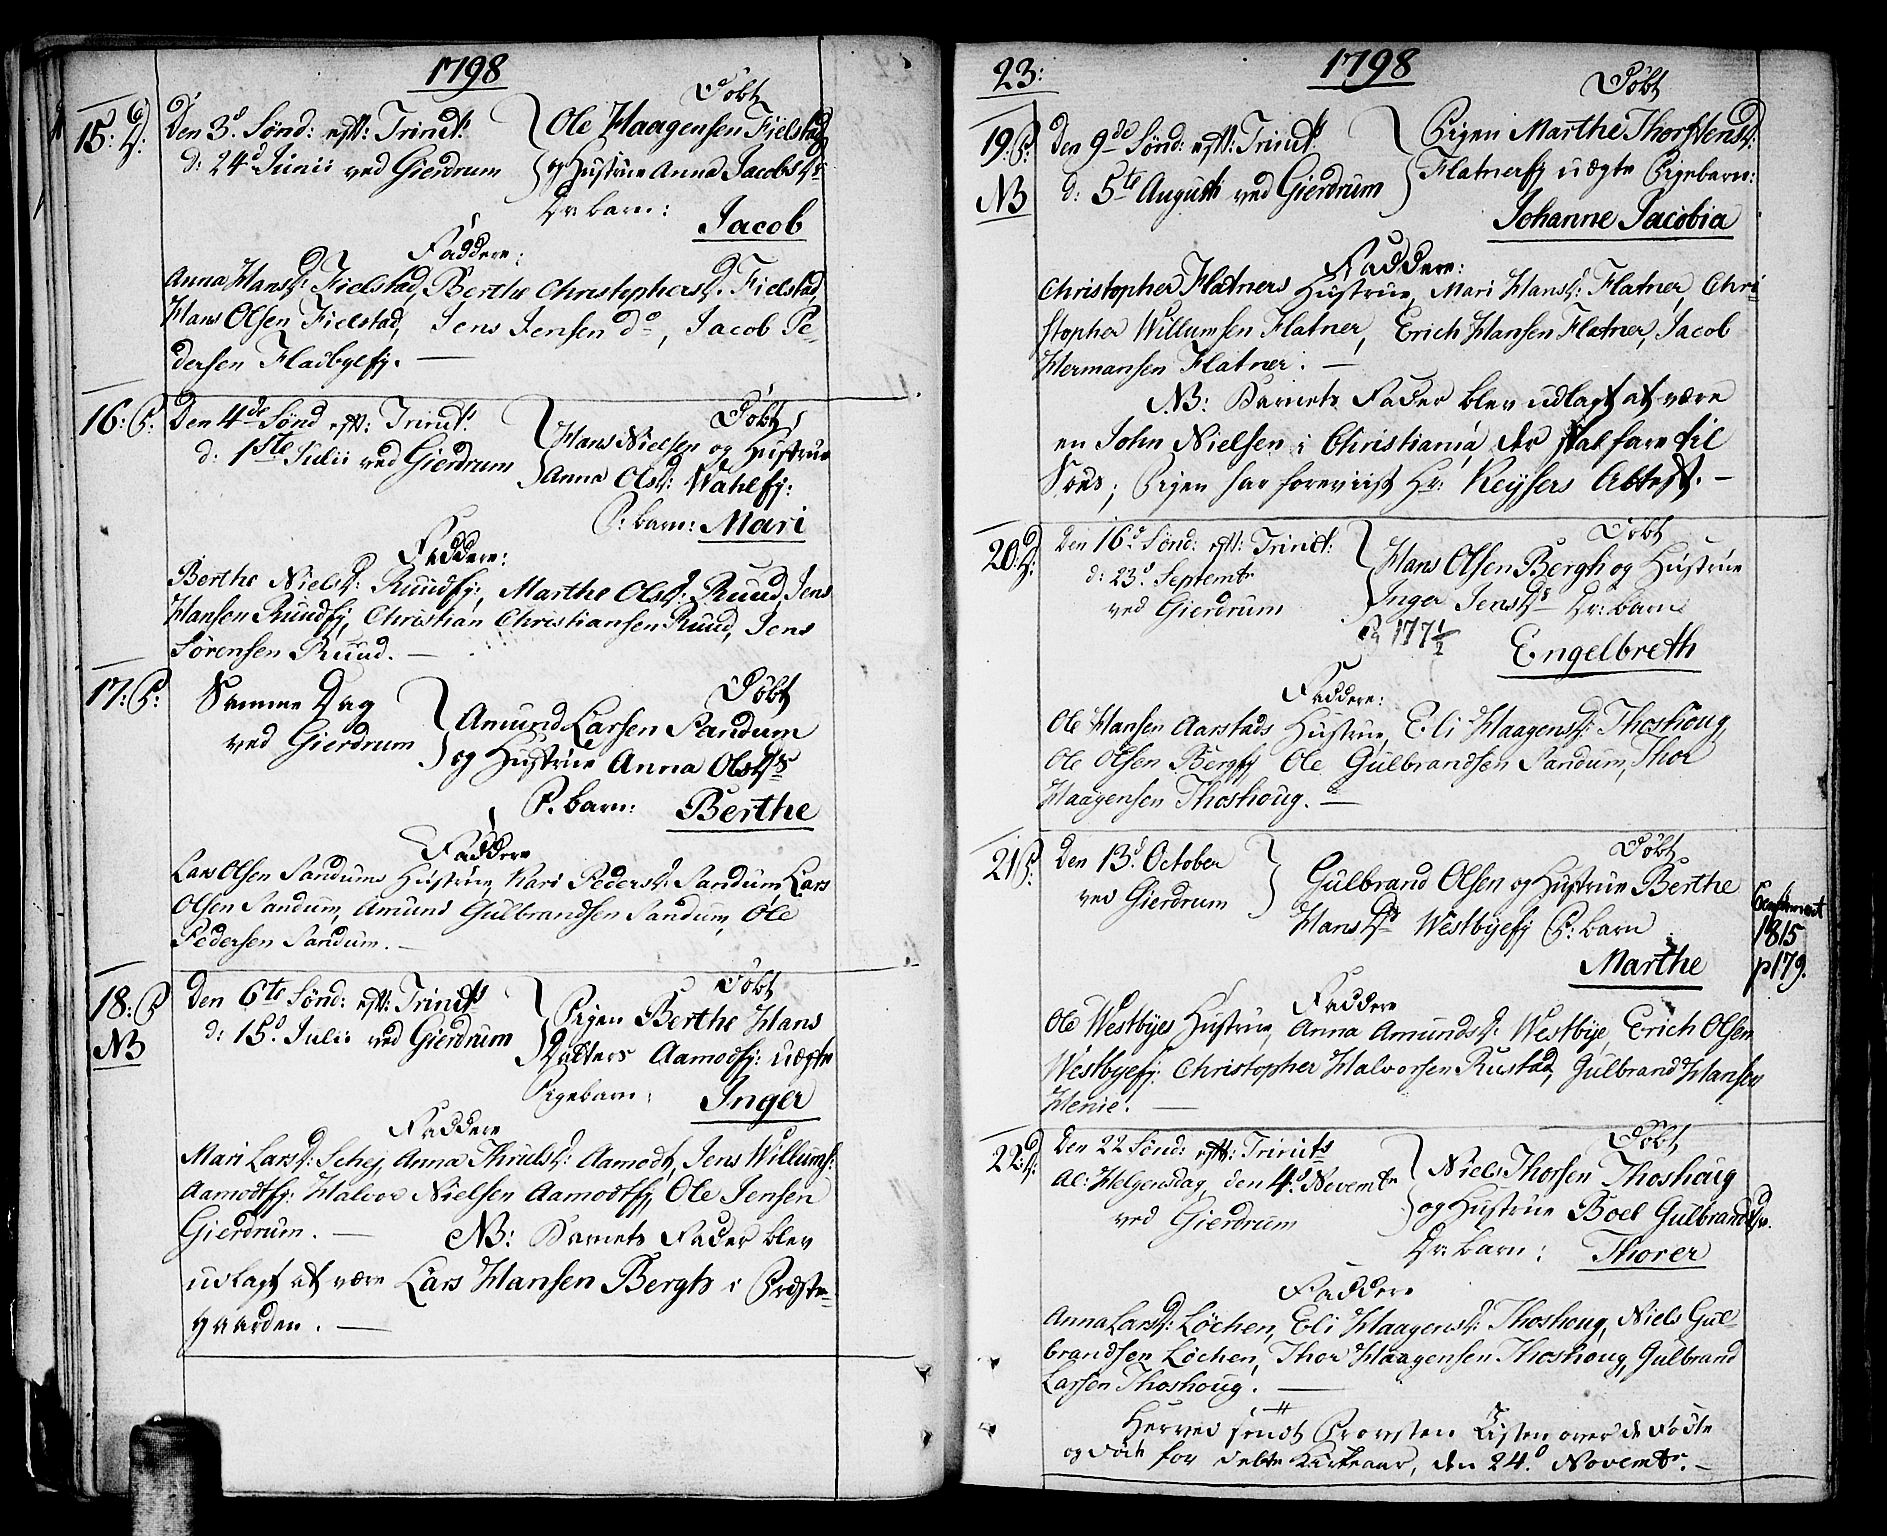 1798
15: D:
Den 3d. Sønd: eft: Trinit:
d: 24d Junii ved Gierdrum
Døbt
Ole Haagensen Fielstad
og Hustrue Anna Jacobsdr
Dr: barn:
Jacob
Faddere:
Anna Hansd: Fielstad, Berthe Christophersd: Fielstad,
Hans Olsen Fielstad, Jens Jensen do, Jacob Pe-
dersen Fladbyeej. —
16: P:
Den 4de Sønd eft: Trinit:
d: 1ste Julii ved Gierdrum
Døbt
Hans Nielsen og Hustrue
Anna Olsd: Wahlej:
P: barn: Mari
Faddere:
Berthe Nielsd: Ruudej:, Marthe Olsd: Ruud, Jens
Hansen Ruudej, Christian Christiansen Ruud, Jens
Sørensen Ruud. —
17: P:
Samme Dag
ved Gierdrum
Døbt
Amund Larsen Sandum
og Hustrue Anna Olsdr
P. barn: Berthe
Faddere
Lars Olsen Sandums Hustrue, Kari Pedersd: Sandum, Lars
Olsen Sandum, Amund Gulbrandsen Sandum, Ole
Pedersen Sandum. —
18: P
NB
Den 6te Sønd: eft: Trinit:
d: 15d. Julii ved Gierdrum
Døbt
Pigen Berthe Hans
Datters Aamodtej: uægte
Pigebarn: Inger
Faddere
Mari Larsd: Schej, Anna Thrulsd: Aamodt, Jens Willums:
Aamodtej: Halvor Nielsen Aamodtej, Ole Jensen
Gierdrum. — NB: Barnets Fader blev
udlagt at være Lars Hansen Bergh i Præste-
gaarden. —
23:
1798
19: P:
NB
Den 9de Sønd: eft: Trinit:
d: 5te Augusti ved Gierdrum
Døbt
Pigen Marthe Thorstensd:
Flatnerej uægte Pigebarn:
Johanne Jacobia
Faddere:
Christopher Flatners Hustrue, Mari Hansd: Flatner, Chri-
stopher Willumsen Flatner, Erich Hansen Flatner, Jacob
Hermansen Flatner. —
NB: Barnets Fader blev udlagt at være
en John Nielsen i Christiania, der skal fare til
Søes; Pigen har foreviist Hr: Keysers Attest. —
20: D:
Den 16d. Sønd: eft: Trinit:
d: 23d. Septembr
ved Gierdrum
Døbt
Hans Olsen Bergh og Hustrue
Inger Jensdr Dr: barn
Engelbreth
Faddere:
Ole Hansen Aarstads Hustrue, Eli Haagensd: Thoshoug,
Ole Olsen Bergej, Ole Gulbrandsen Sandum, Thor
Haagensen Thoshoug. —
21 P:
Den 13d. October
ved Gierdrum
Døbt
Gulbrand Olsen og Hustrue Berthe
Hansdr Westbyeej P: barn
Marthe
Confirmeret
1815
p 179.
Faddere
Ole Westbyes Hustrue, Anna Amundsd: Westbye, Erich Olsen
Westbyeej: Christopher Halvorsen Rustad, Gulbrand Hansen
Henie. —
22: D:
Den 22 Sønd: eft: Trinits
Al: Helgensdag, den 4d. Novembr
ved Gierdrum
Døbt
Niels Thorsen Thoshoug
og Hustrue Boel Gulbrandsdr.
Dr: barn: Thorer
Faddere
Anna Larsd: Løchen, Eli Haagensd: Thoshoug, Niels Gul-
brandsen Løchen, Thor Haagensen Thoshoug, Gulbrand
Larsen Thoshoug. —
Herved sendt Provsten Listen over de Fødte
og Døde for dette Kirkeaar, den 24d. Novembr. —